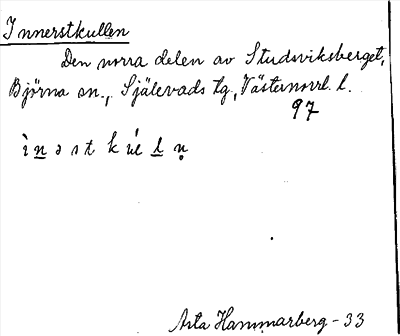 Innerstkullen
Den norra delen av Studsviksberget,
Björna sn., Själevads tg., Västernorrl. l.
97
ì n ə s t k úe l n̥
Asta Hammarberg - 33